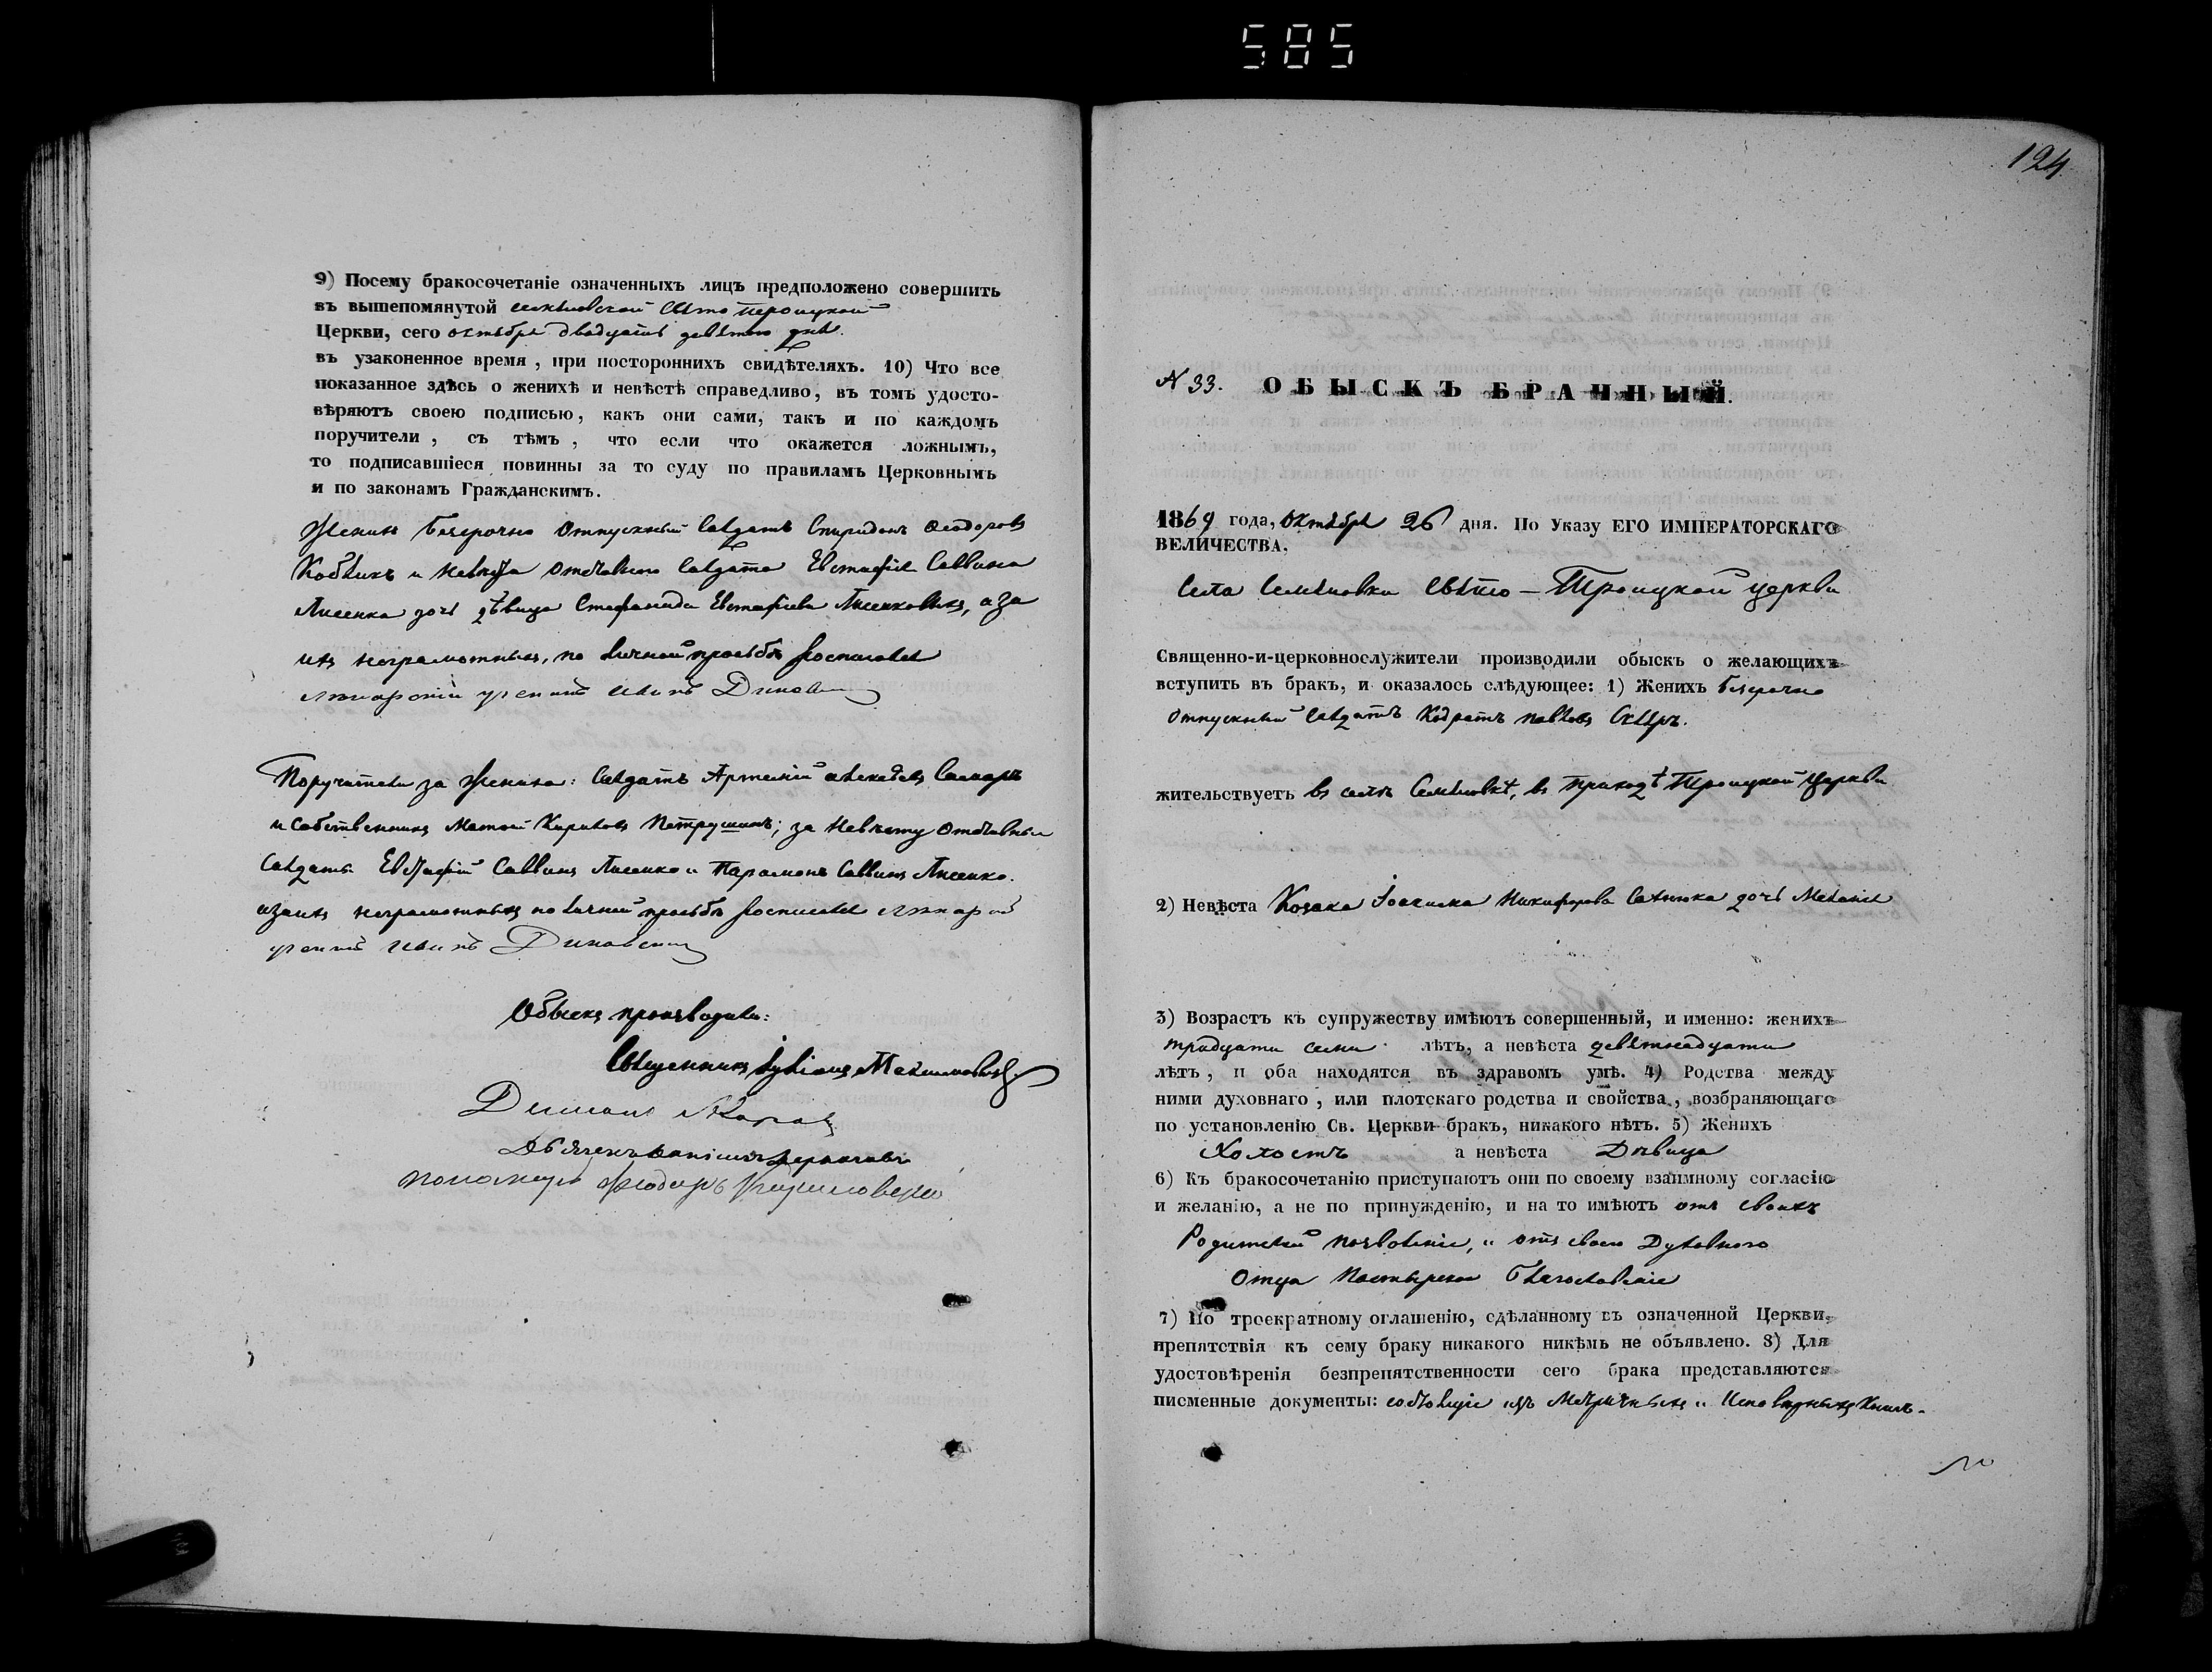 585
9) Посему бракосочетаніе означенныхъ лицъ предположено совершить
въ вышепомянутой Семеновской Свято Троицкой
Церкви, сего октября двадцать девятого дня.
въ узаконенное время, при постороннихъ свидѣтеляхъ. 10) Что все
показанное здѣсь о женихѣ и невѣстѣ справедливо, въ томъ удосто-
вѣряютъ своею подписью, какъ они сами, такъ и по каждомъ
поручители, съ тѣмъ, что если что окажется ложнымъ,
то подписавшіеся повинны за то суду по правиламъ Церковнымъ
и по законамъ Гражданскимъ.
Женихъ безсрочно отпускный солдатъ Спиридонъ Ѳеодоровъ
и невѣста отставного солдата Евстафія Саввина
Лисенка дочь дѣвица Стефанида Евстафіева, а за
ихъ неграмотныхъ, по личной просьбѣ росписался
Поручители за жениха: солдатъ Артемій
и собственникъ Матѳей Кириловъ Петрушинъ; за невѣсту отставный
солдатъ Евстафій Саввинъ Лисенко и Парамонъ Саввинъ Лисенко.
а за ихъ неграмотныхъ по личной просьбѣ росписался
Обыскъ производили:
Священникъ Іуліанъ
Пономарь Ѳеодоръ
124
N 33. ОБЫСКЪ БРАЧНЫЙ.
1869 года, Октября 26 дня. По Указу ЕГО ИМПЕРАТОРСКАГО
ВЕЛИЧЕСТВА,
Села Семеновки Свято-Троицкой церкви
Священно-и-церковнослужители производили обыскъ о желающихъ
вступить въ бракъ, и оказалось слѣдующее: 1) Женихъ безсрочно
отпускный солдатъ Кодратъ Павловъ
жительствуетъ въ селѣ Семеновкѣ, въ приходѣ Троицкой Церкви
2) Невѣста Козака Іоакима Никифорова дочь Меланія
3) Возрастъ къ супружеству имѣютъ совершенный, и именно: женихъ
тридцати семи лѣтъ, а невѣста девятнадцати
лѣтъ, и оба находятся въ здравомъ умѣ. 4) Родства между
ними духовнаго, или плотскаго родства и свойства, возбраняющаго
по установленію Св. Церкви бракъ, никакого нѣтъ. 5) Женихъ
Холостъ а невѣста Дѣвица
6) Къ бракосочетанію приступаютъ они по своему взаимному согласію
и желанію, а не по принужденію, и на то имѣютъ отъ своихъ
Родителей позволеніе, и отъ своего Духовного
Отца Пастырское Благословеніе
7) По троекратному оглашенію, сдѣланному въ означенной Церкви,
препятствія къ сему браку никакого никѣмъ не объявлено. 8) Для
удостовѣренія безпрепятственности сего брака представляются
писменные документы: изъ Метричныхъ и Исповѣдныхъ Книгъ.